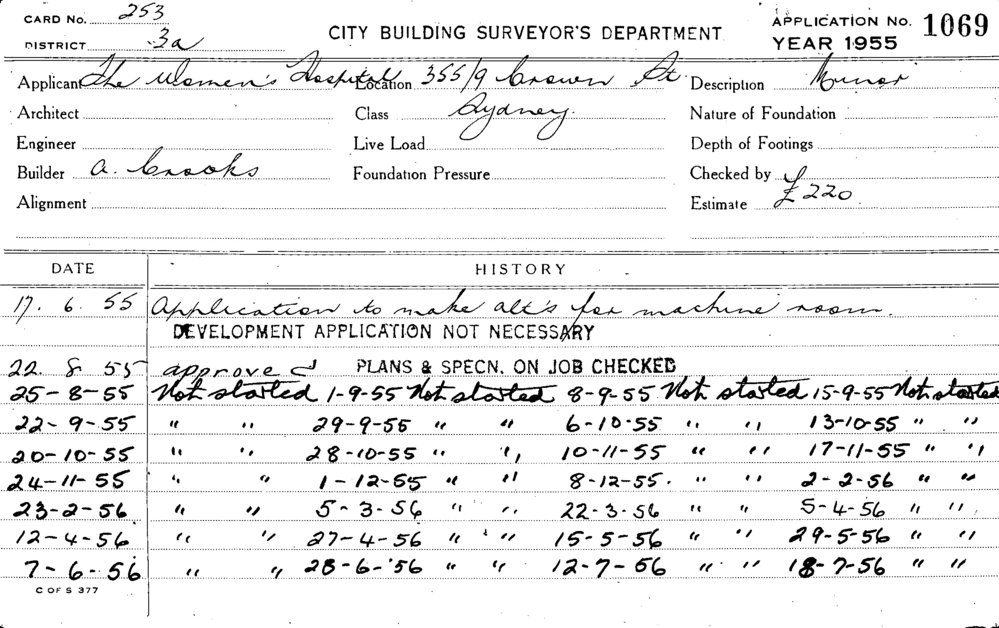 CARD No. 253
DISTRICT 3a
CITY BUILDING SURVEYOR'S DEPARTMENT
APPLICATION No. 1069
YEAR 1955
Applicant The Women's Hospital Location 355/9 Crown St Description Minor
Architect Class Sydney. Nature of Foundation
Engineer Live Load Depth of Footings
Builder A. Crooks Foundation Pressure Checked by
Alignment Estimate £220
DATE HISTORY
17. 6. 55 Application to make alt's for machine room.
DEVELOPMENT APPLICATION NOT NECESSARY
22. 8. 55 approved PLANS & SPECN. ON JOB CHECKED
25-8-55 Not started 1-9-55 Not started 8-9-55 Not started 15-9-55 Not started
22-9-55 " " 29-9-55 " " 6-10-55 " " 13-10-55 " "
20-10-55 " " 28-10-55 " " 10-11-55 " " 17-11-55 " "
24-11-55 " " 1-12-55 " " 8-12-55. " " 2-2-56 " "
23-2-56 " " 5-3-56 " " 22-3-56 " " 5-4-56 " "
12-4-56 " " 27-4-56 " " 15-5-56 " " 29-5-56 " "
7-6-56 " " 28-6-56 " " 12-7-56 " " 18-7-56 " "
C OF S 377